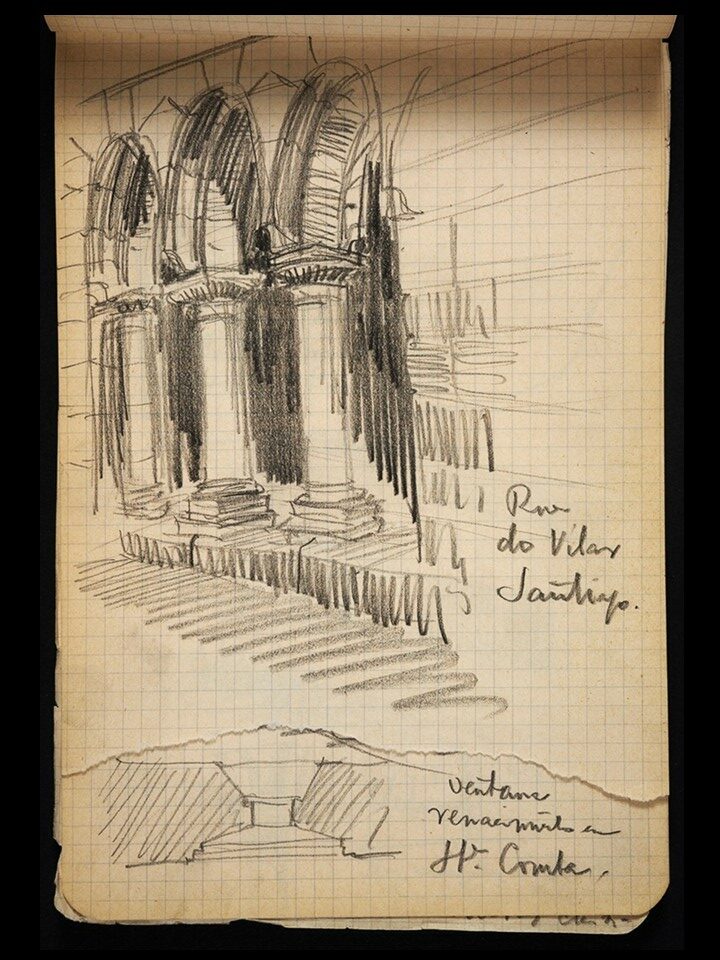 Rua
do Vilar
Santiago.
ventana
en
Sta. Comba.